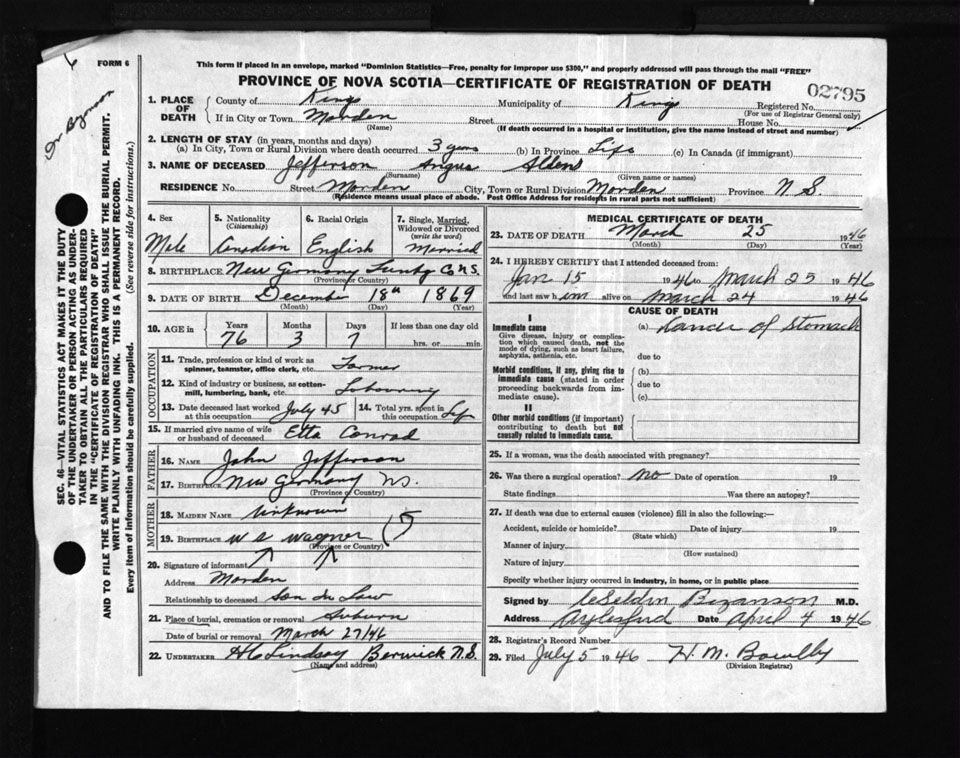 This form if placed in an envelope, marked "Dominion Statistics—Free, penalty for improper use $300," and properly addressed will pass through the mail "FREE"
6
FORM 6
PROVINCE OF NOVA SCOTIA—CERTIFICATE OF REGISTRATION OF DEATH
02795
1. PLACE OF DEATH
County of Kings Municipality of Kings Registered No.
(For use of Registrar General only)
If in City or Town Morden Street House No.
(Name) (If death occurred in a hospital or institution, give the name instead of street and number)
2. LENGTH OF STAY (in years, months and days)
(a) In City, Town or Rural Division where death occurred 3 years (b) In Province Life (c) In Canada (if immigrant)
3. NAME OF DECEASED Jefferson Angus Alden
(Surname) (Given name or names)
RESIDENCE No. Street Morden City, Town or Rural Division Morden Province N S.
(Residence means usual place of abode. Post Office Address for residents in rural parts not sufficient)
4. Sex Male
5. Nationality (Citizenship) Canadian
6. Racial Origin English
7. Single, Married, Widowed or Divorced (write the word) Married
8. BIRTHPLACE New Germany Lunbg Co N.S.
(Province or Country)
9. DATE OF BIRTH December 18th 1869
(Month) (Day) (Year)
10. AGE in Years 76 Months 3 Days 7 If less than one day old hrs. or min.
OCCUPATION
11. Trade, profession or kind of work as spinner, teamster, office clerk, etc. Farmer
12. Kind of industry or business, as cotton-mill, lumbering, bank, etc. Labouring
13. Date deceased last worked at this occupation July 45 14. Total yrs. spent in this occupation Life
15. If married give name of wife or husband of deceased Etta Conrad
FATHER
16. NAME John Jefferson
17. BIRTHPLACE New Germany N S.
(Province or Country)
MOTHER
18. MAIDEN NAME Unknown
19. BIRTHPLACE W S Wagner
(Province or Country)
20. Signature of informant
Address Morden
Relationship to deceased Son In Law
21. Place of burial, cremation or removal Auburn
Date of burial or removal March 27/46
22. UNDERTAKER H C Lindsay Berwick N.S.
(Name and address)
MEDICAL CERTIFICATE OF DEATH
23. DATE OF DEATH March 25 1946
(Month) (Day) (Year)
24. I HEREBY CERTIFY that I attended deceased from:
Jan 15 1946 to March 25 1946
and last saw him alive on March 24 1946
CAUSE OF DEATH
I
Immediate cause
Give disease, injury or complication which caused death, not the mode of dying, such as heart failure, asphyxia, asthenia, etc.
(a) Cancer of Stomach
due to
Morbid conditions, if any, giving rise to immediate cause (stated in order proceeding backwards from immediate cause).
(b)
due to
(c)
II
Other morbid conditions (if important) contributing to death but not causally related to immediate cause.
25. If a woman, was the death associated with pregnancy?
26. Was there a surgical operation? no Date of operation 19
State findings Was there an autopsy?
27. If death was due to external causes (violence) fill in also the following:—
Accident, suicide or homicide? Date of injury 19
(State which)
Manner of injury
(How sustained)
Nature of injury
Specify whether injury occurred in industry, in home, or in public place
Signed by Bezanson M.D.
Address Aylesford Date April 4 1946
28. Registrar's Record Number
29. Filed July 5 1946 H. M.
(Division Registrar)
SEC. 46—VITAL STATISTICS ACT MAKES IT THE DUTY
OF THE UNDERTAKER OR PERSON ACTING AS UNDER-
TAKER TO OBTAIN ALL THE PARTICULARS REQUIRED
IN THE "CERTIFICATE OF REGISTRATION OF DEATH"
AND TO FILE THE SAME WITH THE DIVISION REGISTRAR WHO SHALL ISSUE THE BURIAL PERMIT.
WRITE PLAINLY WITH UNFADING INK. THIS IS A PERMANENT RECORD.
Every item of information should be carefully supplied. (See reverse side for instructions.)